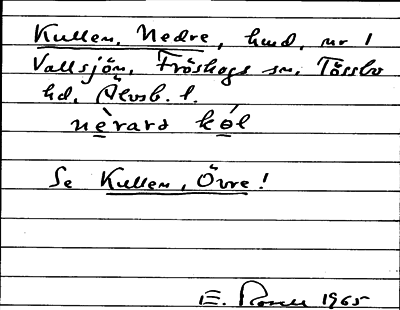 Kullen, Nedre, hmd, nr 1
Vallsjön, Fröskogs sn, Tössbo
hd, Älvsb. l.
nèrarə kól
Se Kullen, Övre!
E. 1965